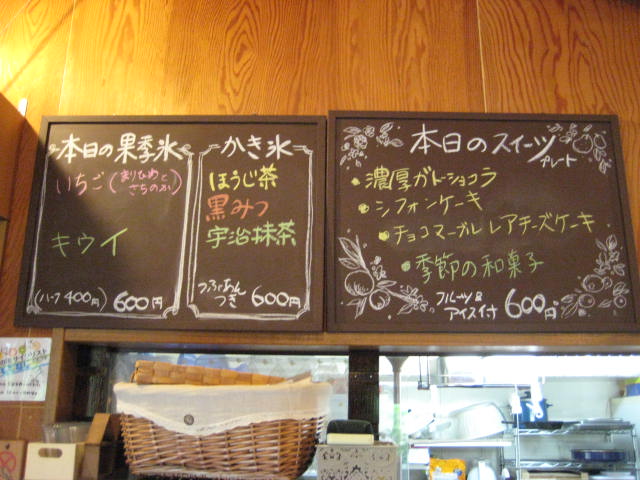 本日の果季氷
いちご(まりひめと
さちのか)
キウイ
(ハーフ 400円) 600円
かき氷
ほうじ茶
黒みつ
宇治抹茶
つぶあん
つき 600円
本日のスイーツ
プレート
・濃厚ガトーショコラ
・シフォンケーキ
・チョコマーブルレアチーズケーキ
・季節の和菓子
フルーツ&
アイス付 600円